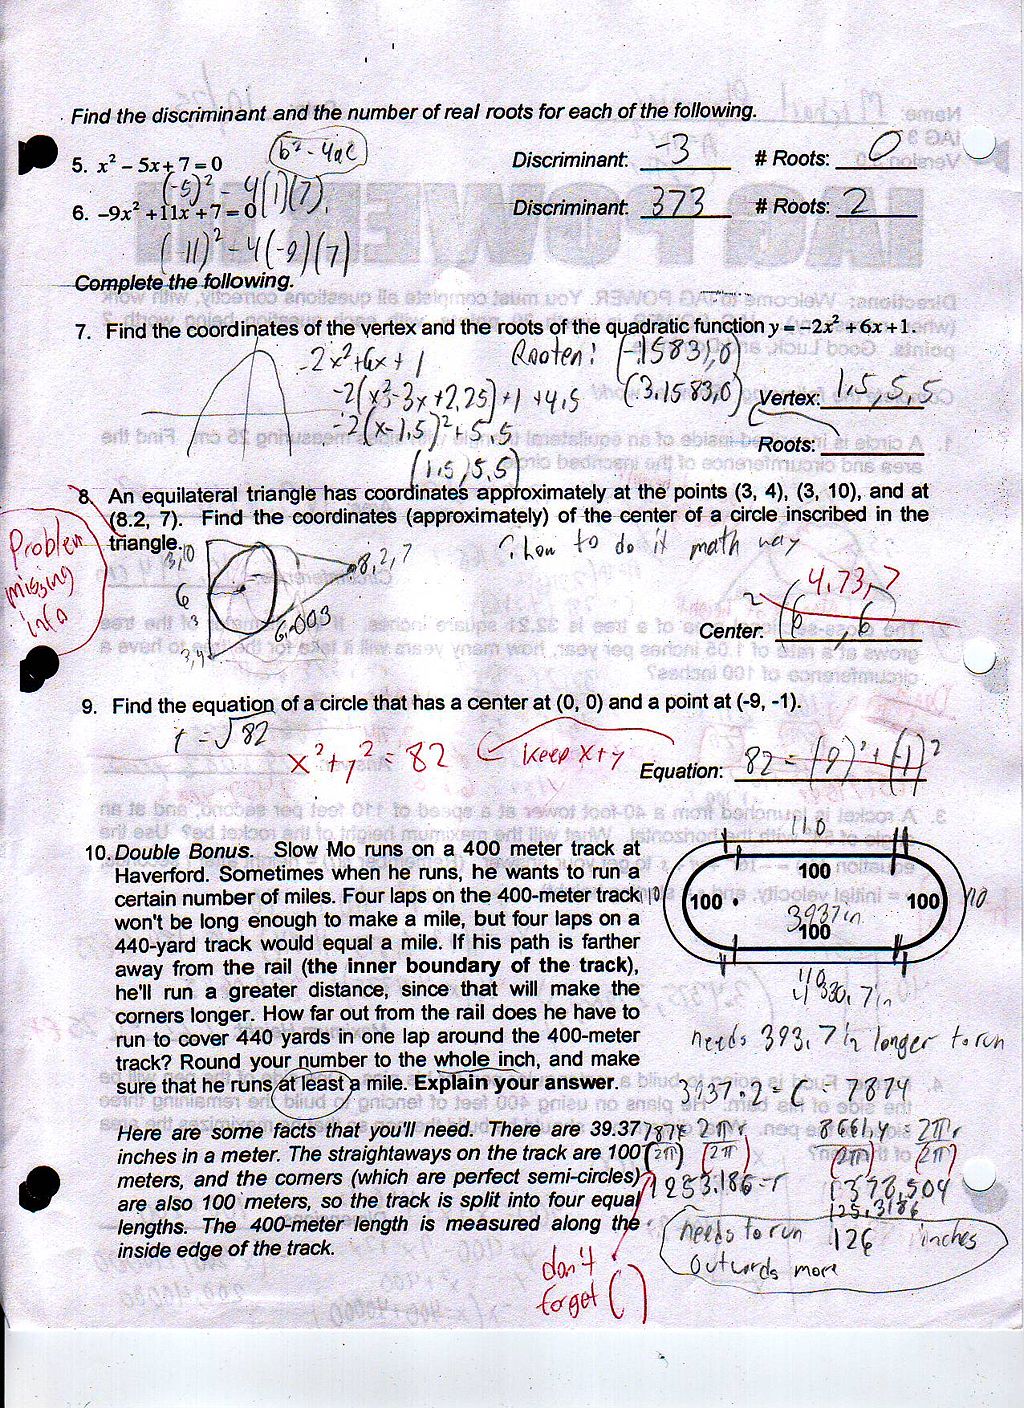 Find the discriminant and the number of real roots for each of the following.
b² - 4ac
5. x² – 5x + 7 = 0
Discriminant: -3 # Roots: 0
(-5)² - 4(1)(7)
6. –9x² + 11x + 7 = 0
Discriminant: 373 # Roots: 2
(-11)² - 4(-9)(7)
Complete the following.
7. Find the coordinates of the vertex and the roots of the quadratic function y = –2x² + 6x + 1.
-2x² + 6x + 1
Rooten: (-.1583,0)
-2(x²-3x+2.25)+1 +4.5
(3.1583,0)
Vertex: 1.5, 5.5
-2(x-1.5)²+5.5
Roots:
(1.5, 5.5)
8. An equilateral triangle has coordinates approximately at the points (3, 4), (3, 10), and at
(8.2, 7). Find the coordinates (approximately) of the center of a circle inscribed in the
triangle.
? how to do it math way
Problem
missing
info
3,10
8,2,7
6
3
6.003
3,4
4.73, 7
2
Center: (6, 6)
9. Find the equation of a circle that has a center at (0, 0) and a point at (-9, -1).
r = √82
x² + y² = 82
keep x+y
Equation: 82 = (-9)² + (-1)²
10. Double Bonus. Slow Mo runs on a 400 meter track at
Haverford. Sometimes when he runs, he wants to run a
certain number of miles. Four laps on the 400-meter track
won't be long enough to make a mile, but four laps on a
440-yard track would equal a mile. If his path is farther
away from the rail (the inner boundary of the track),
he'll run a greater distance, since that will make the
corners longer. How far out from the rail does he have to
run to cover 440 yards in one lap around the 400-meter
track? Round your number to the whole inch, and make
sure that he runs at least a mile. Explain your answer.
Here are some facts that you'll need. There are 39.37
inches in a meter. The straightaways on the track are 100
meters, and the corners (which are perfect semi-circles)
are also 100 meters, so the track is split into four equal
lengths. The 400-meter length is measured along the
inside edge of the track.
110
100
110 100 100 110
3937in
100
110
4330.7in
needs 393.7 in longer to run
3937·2 = C 7874
7874 2πr
(2π) (2π)
8661.4 = 2πr
(2π) (2π)
1253.186=r
1378.504
125.3186
needs to run 126 inches
outwards more
don't
forget ( )